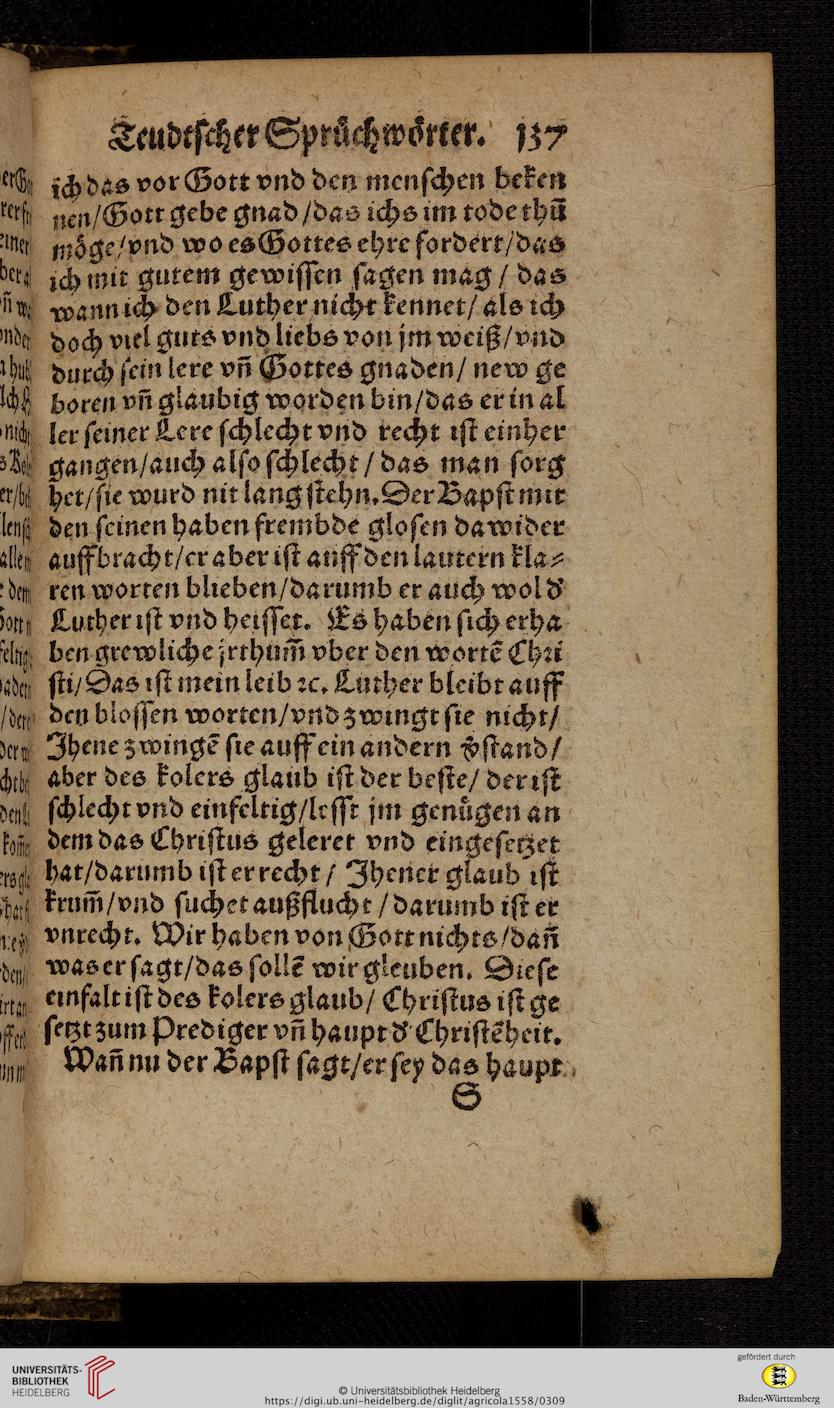 Teudtſcher Spruͤchwoͤrter. 137
ich das vor Gott vnd den menſchen beken
nen/Gott gebe gnad/das ichs im tode thuͤ
moͤge/vnd wo es Gottes ehre fordert/das
ich mit gutem gewiſſen ſagen mag / das
wann ich den Luther nicht kennet/ als ich
doch viel guts vnd liebs von jm weiß/vnd
durch ſein lere vn̄ Gottes gnaden/ new ge
boren vn̄ glaubig worden bin/das er in al
ler ſeiner Lere ſchlecht vnd recht iſt einher
gangen/auch alſo ſchlecht / das man ſorg
het/ſie wurd nit lang ſtehn. Der Bapſt mit
den ſeinen haben frembde gloſen dawider
auffbracht/er aber iſt auff den lautern kla⸗
ren worten blieben/darumb er auch wol dꝰ
Luther iſt vnd heiſſet. Es haben ſich erha
ben grewliche jrthum̄ vber den wortē Chꝛi
ſti/Das iſt mein leib ꝛc. Luther bleibt auff
den bloſſen worten/vnd zwingt ſie nicht/
Jhene zwingē ſie auff ein andern v̓ſtand/
aber des kolers glaub iſt der beſte/ der iſt
ſchlecht vnd einfeltig/leſſt jm genuͤgen an
dem das Chriſtus geleret vnd eingeſetzet
hat/darumb iſt er recht / Jhener glaub iſt
krum̄/vnd ſuchet außflucht /darumb iſt er
vnrecht. Wir haben von Gott nichts/dan̄
was er ſagt/das ſollē wir gleuben. Dieſe
einfalt iſt des kolers glaub/ Chriſtus iſt ge
ſetzt zum Prediger vn̄ haupt dꝰ Chriſtēheit.
Wan̄ nu der Bapſt ſagt/er ſey das haupt
S
UNIVERSITÄTS-
BIBLIOTHEK
HEIDELBERG
© Universitätsbibliothek Heidelberg
https://digi.ub.uni-heidelberg.de/diglit/agricola1558/0309
gefördert durch
Baden-Württemberg